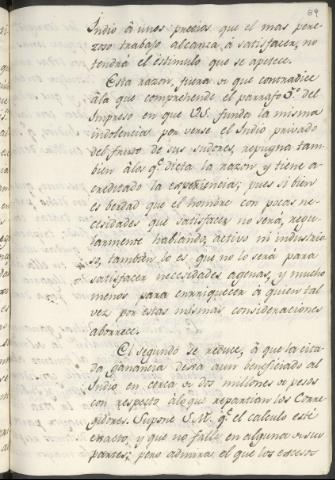 89
Indio à unos precios que el mas pere-
zoso trabajo alcanza à satisfacer, no
tendrá el estimulo que se apetece.
Esta razon, fuera de que contradice
à la que comprehende el parrafo 3.º del
Impreso en que VS. funda la misma
indolencia por verse el Indio privado
del fruto de sus sudores, repugna tam-
bien à los q.e dicta la razon y tiene a-
creditado la experiencia; pues si bien
es berdad que el hombre con pocas ne-
cesidades que satisfacer no será, regu-
larmente hablando, activo ni industrio-
so, tambien lo es que no lo será para
satisfacer necesidades agenas, y mucho
menos para enrriquecer à quien tal
vez por estas mismas consideraciones
aborrece.
El segundo se reduce, à que la cita-
da ganancia dexa aun beneficiado al
Indio en cerca de dos millones de pesos
con respeto al que repartian los Corre-
gidores. Supone S.M. q.e el calculo esté
exacto, y que no falle en alguna de sus
partes; pero admira el que los excesos